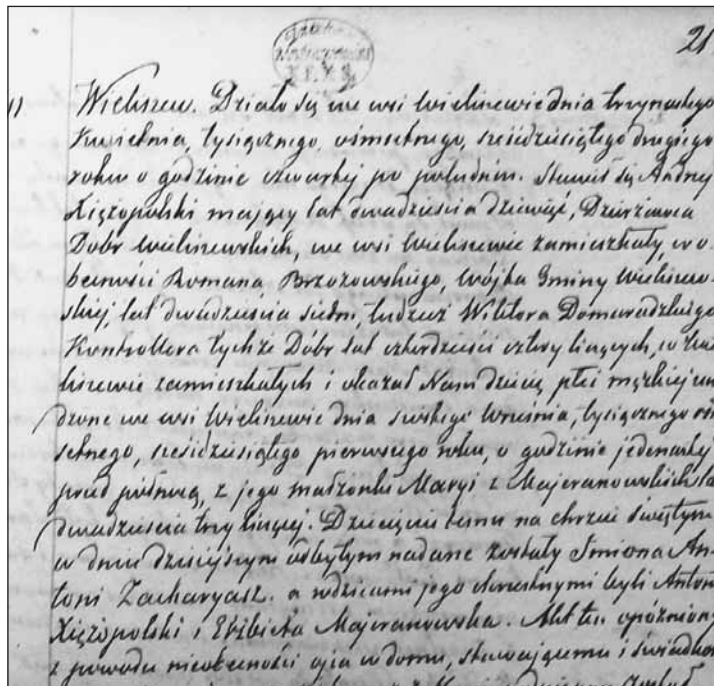 21
Wieliszew. Działo się we wsi Wieliszewie dnia trzynastego
Kwietnia, tysiącznego, ośmsetnego, sześćdziesiątego drugiego
roku o godzinie czwartej po południu. Stawił się Andrzej
Xiężopolski mający lat dwadzieścia dziewięć, Dzierżawca
Dóbr Wieliszewskich, we wsi Wieliszewie zamieszkały, w o-
becności Romana Brzozowskiego, Wójta Gminy Wieliszew-
skiej, lat dwadzieścia siedm, tudzież Wiktora Domaradzkiego
Kontrollera tychże Dóbr lat czterdzieści cztery liczących, w Wie
liszewie zamieszkałych i okazał Nam dziecię płci męzkiej uro
dzone we wsi Wieliszewie dnia szóstego Września, tysiącznego ośm
setnego, sześćdziesiątego pierwszego roku, o godzinie jedenastej
przed północą, z jego małżonki Maryi z Majeranowskich la
dwadzieścia trzy liczącej. Dziecięciu temu na chrzcie świętym
w dniu dzisiejszym odbytym nadane zostały Imiona An-
toni Zacharyasz. a rodzicami jego chrzestnymi byli Anton
Xiężopolski i Elżbieta Majeranowska. Akt ten opóźniony
z powodu nieobecności ojca w domu, stawającemu i świadkom